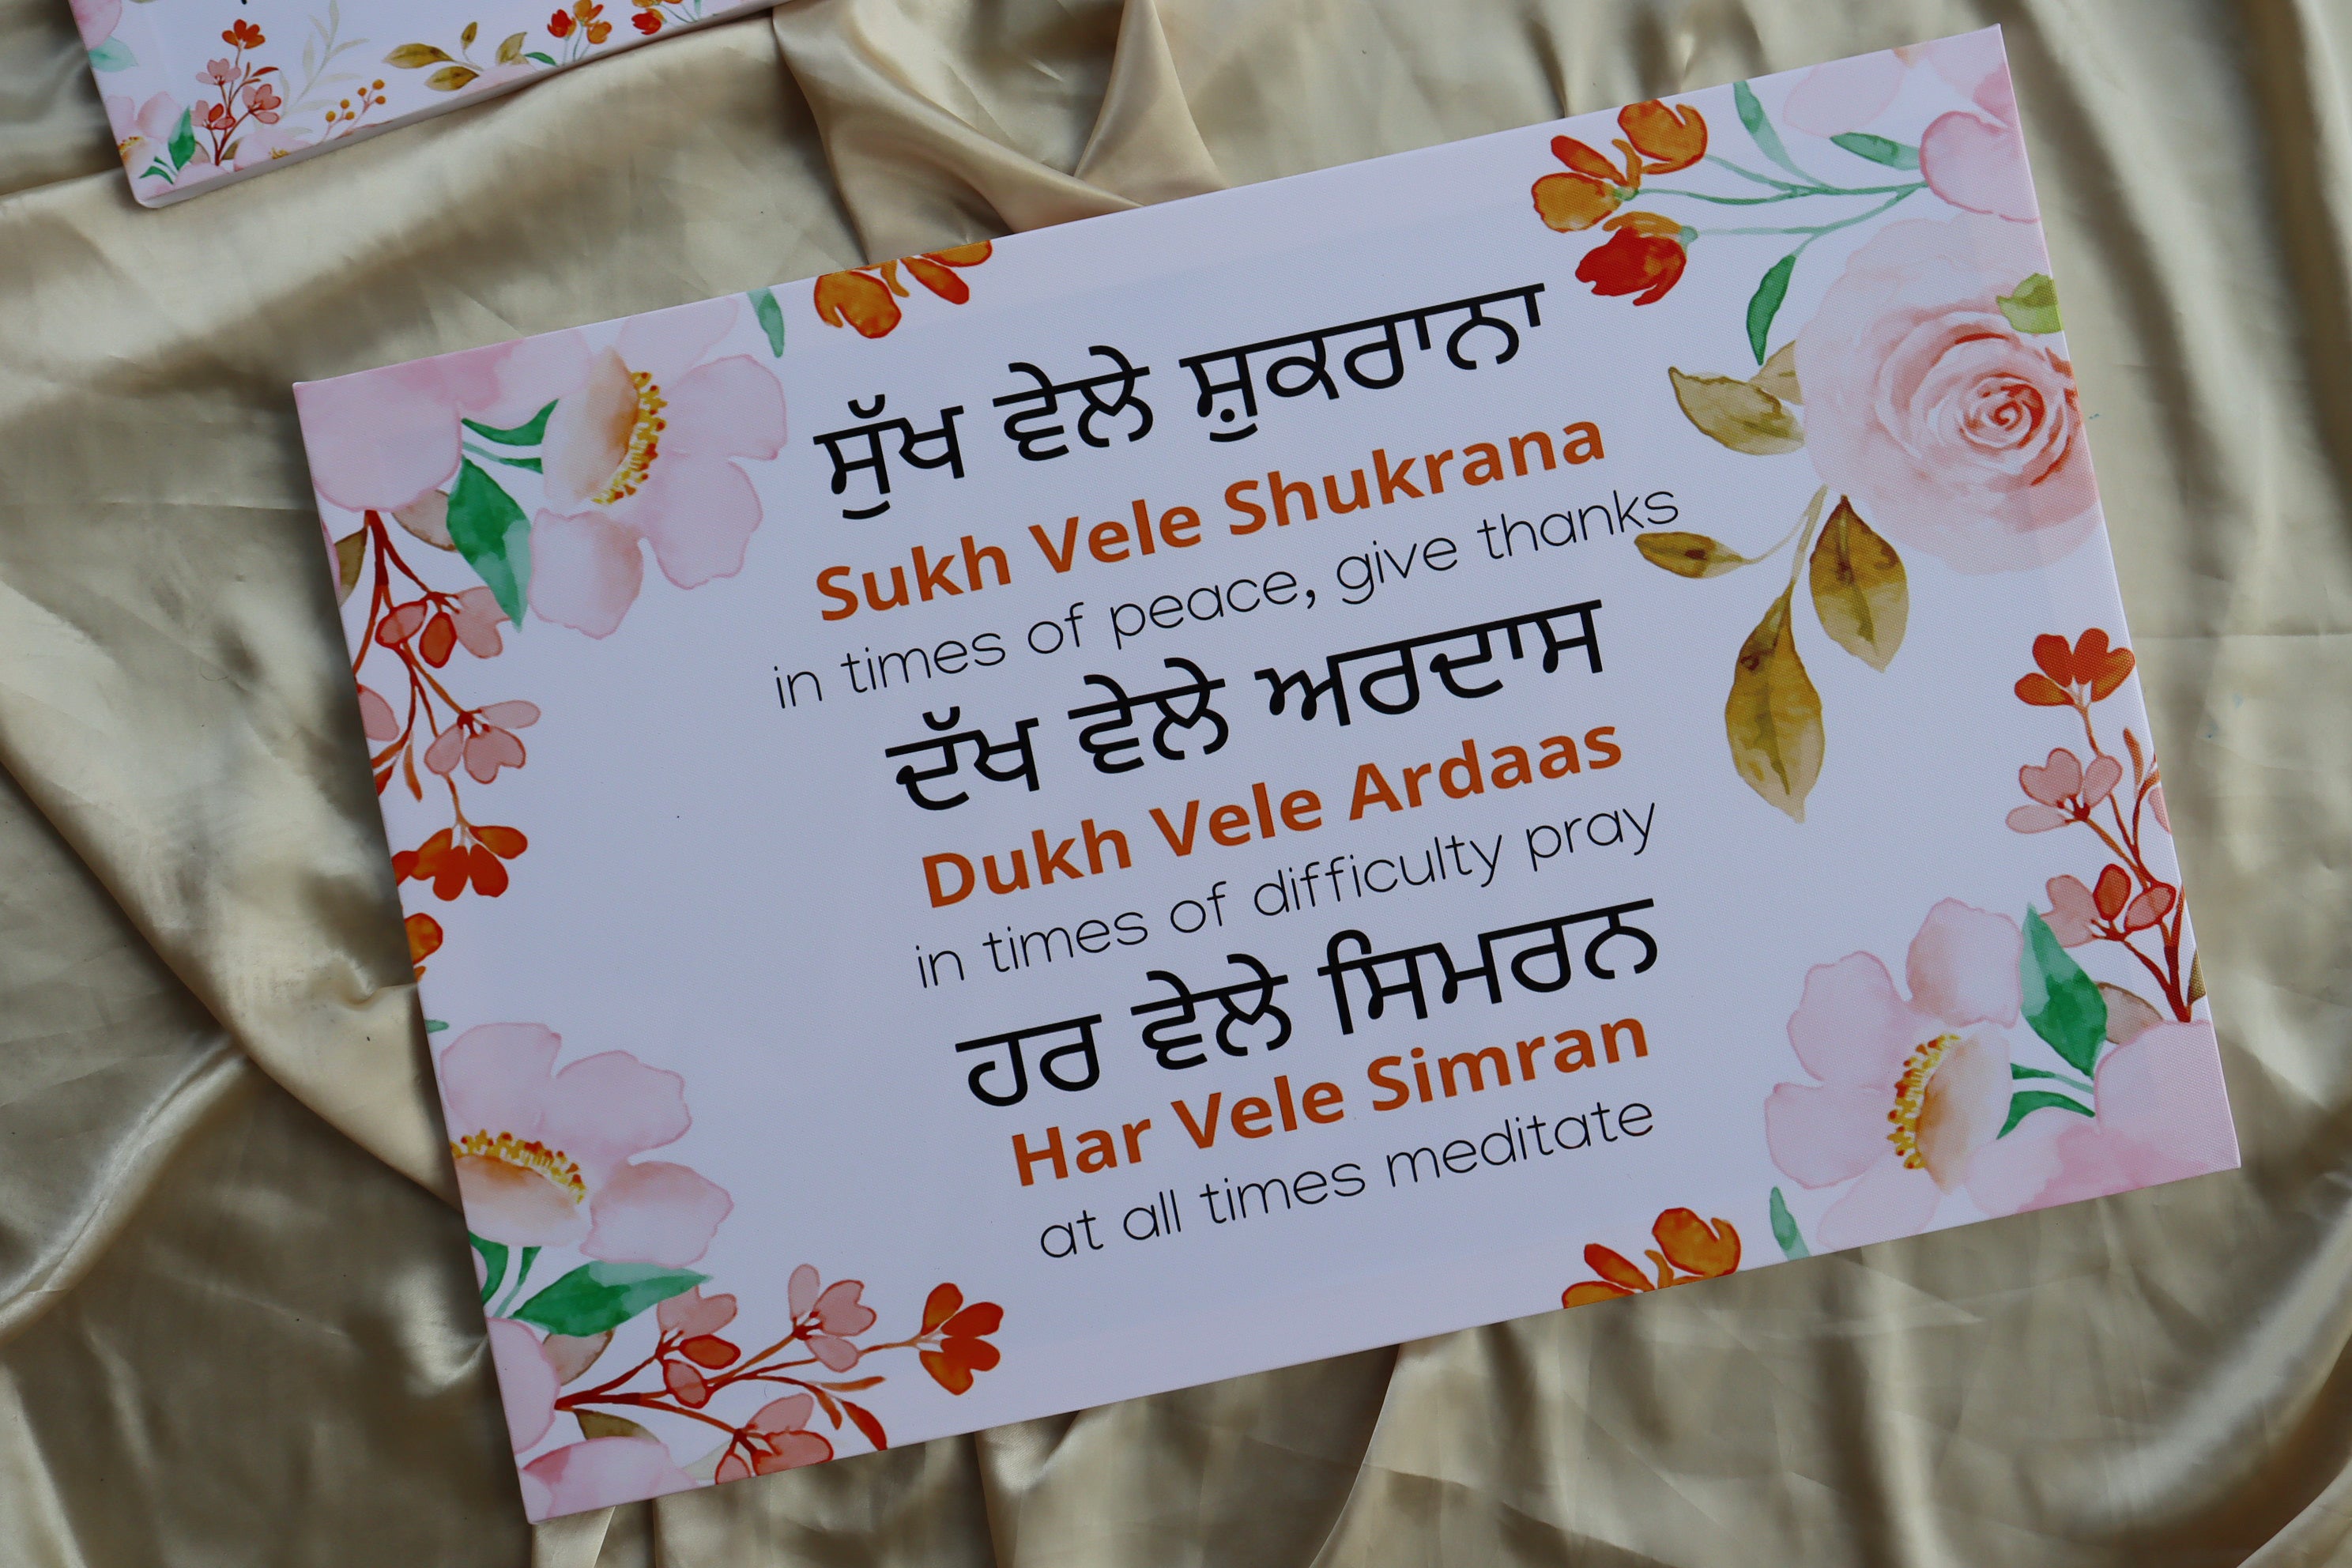 ਸੁੱਖ ਵੇਲੇ ਸ਼ੁਕਰਾਨਾ
Sukh Vele Shukrana
in times of peace, give thanks
ਦੱਖ ਵੇਲੇ ਅਰਦਾਸ
Dukh Vele Ardaas
in times of difficulty pray
ਹਰ ਵੇਲੇ ਸਿਮਰਨ
Har Vele Simran
at all times meditate